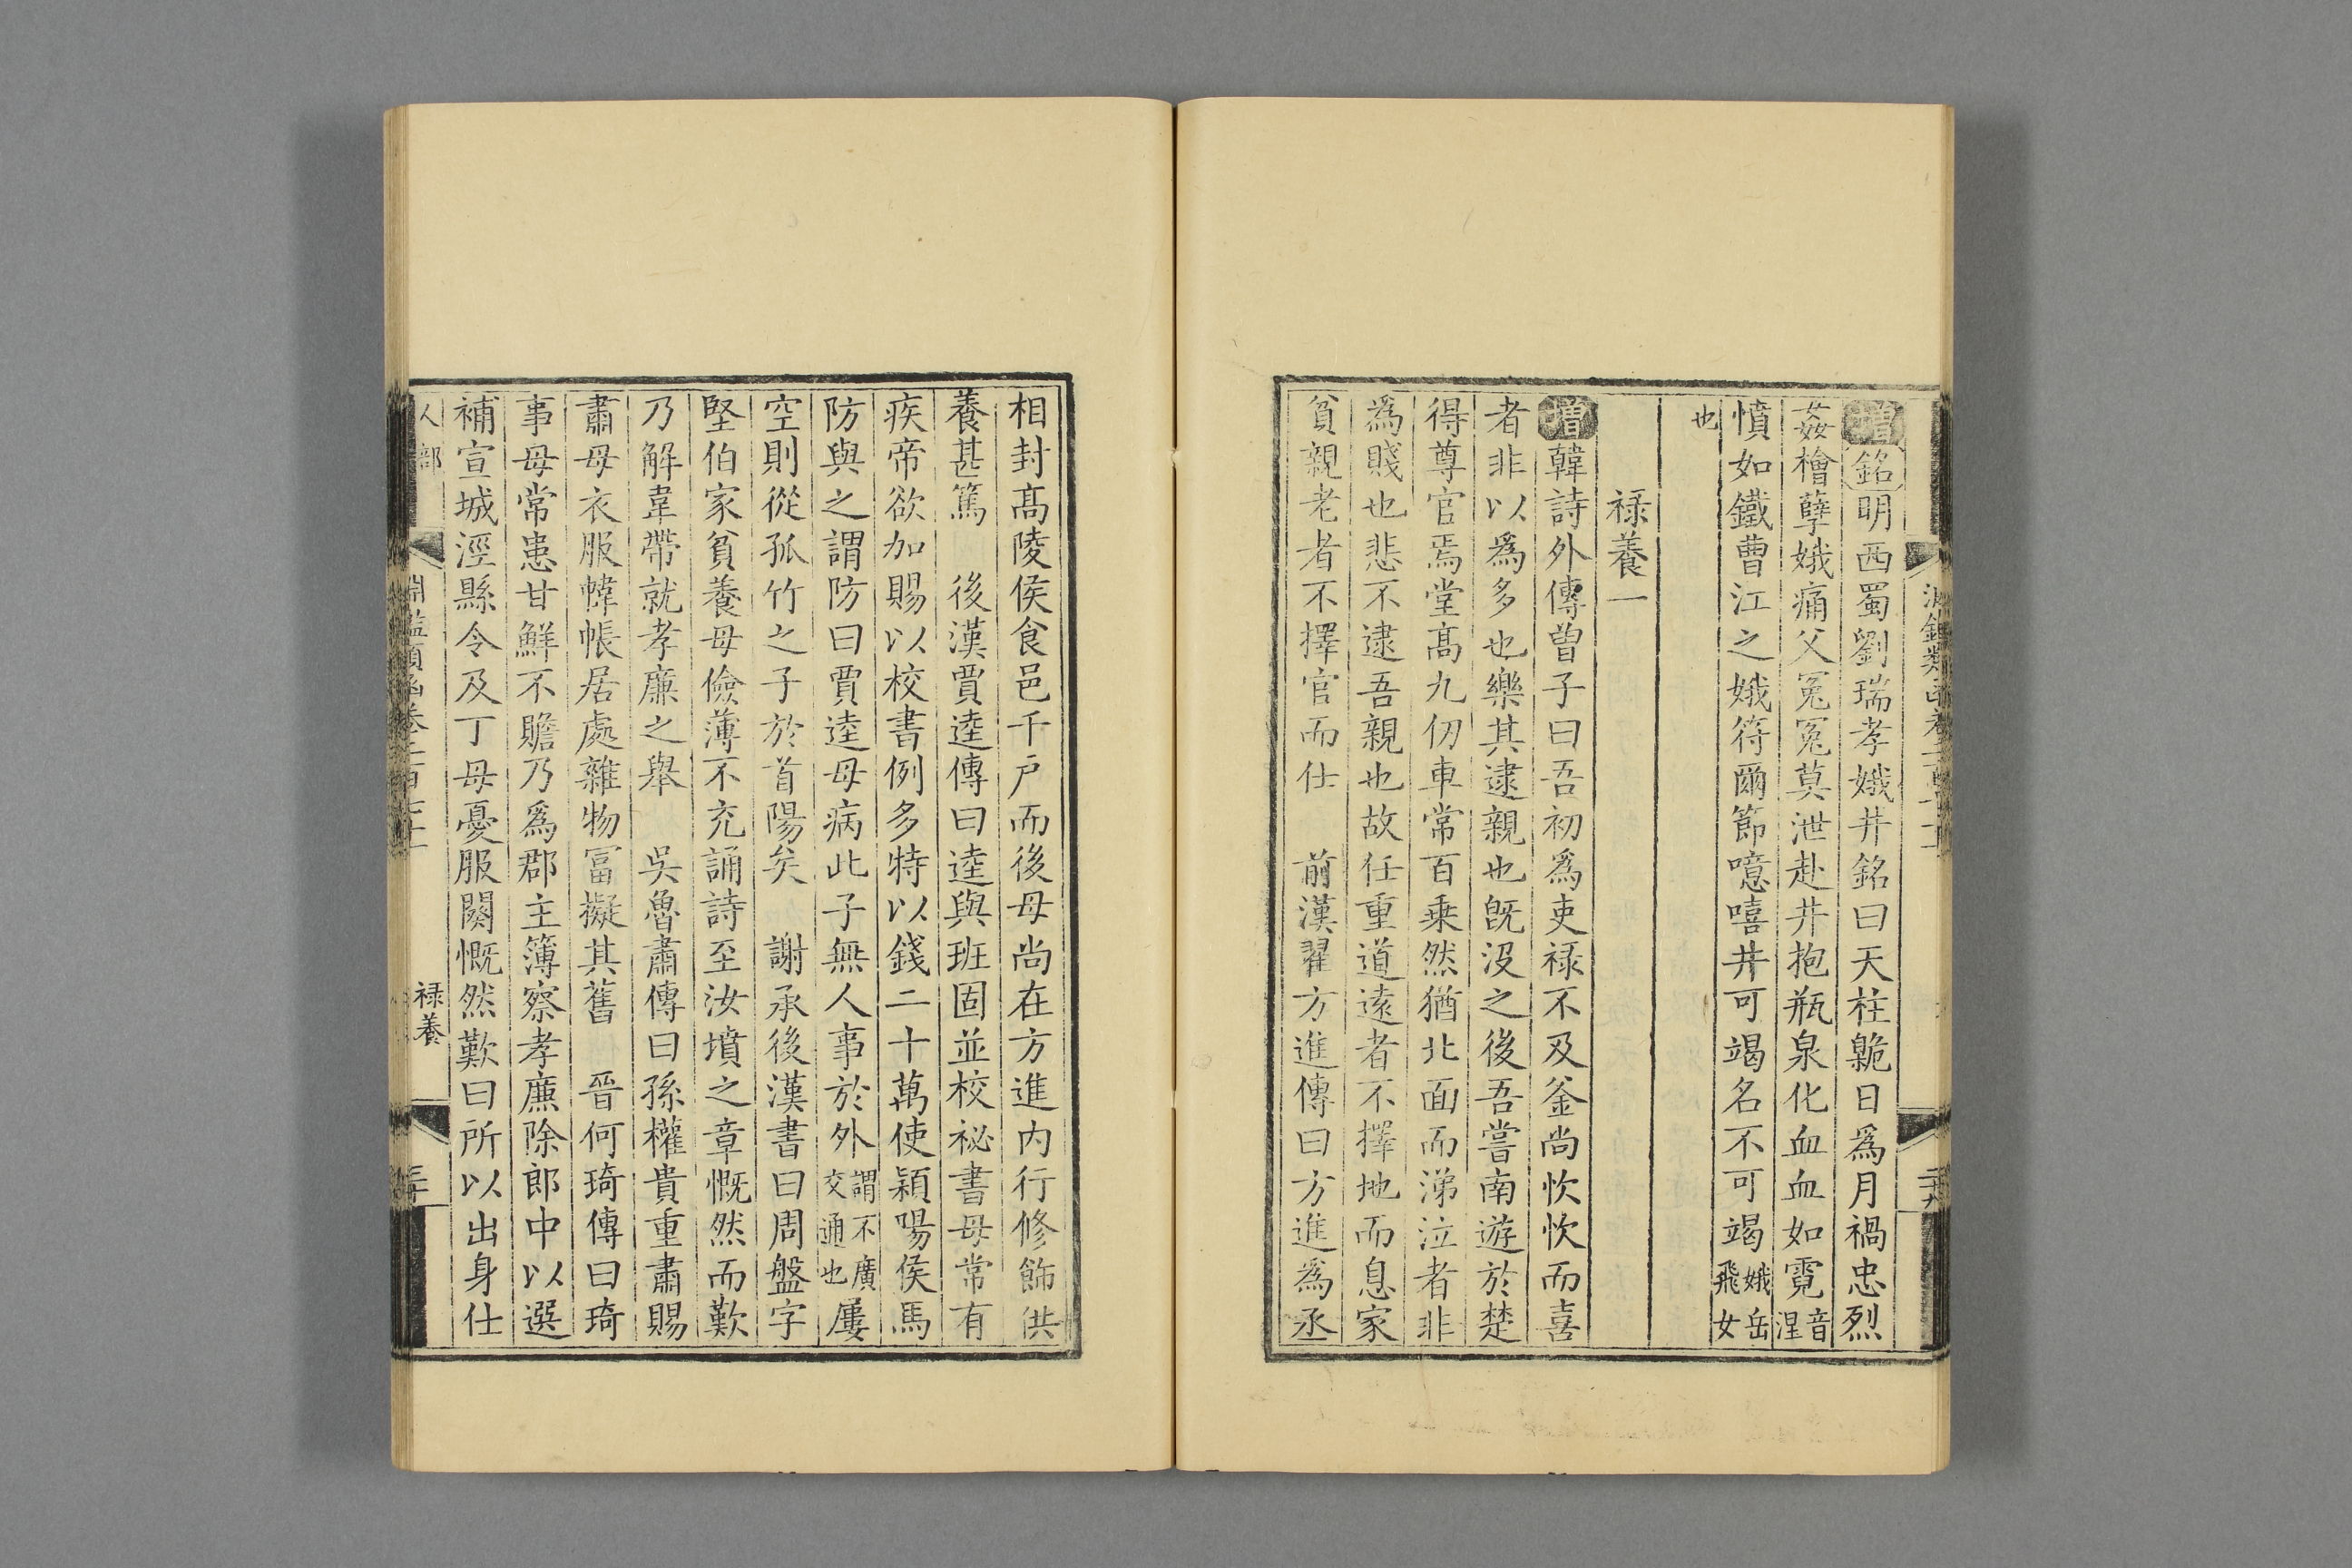 增銘明西蜀劉瑞孝娥井銘曰天柱虧日爲月禍忠烈
姦檜孽娥痛父冤冤莫泄赴井抱瓶泉化血血如霓音涅
憤如鐵曹江之娥符爾節噫嘻井可竭名不可竭娥岳飛女
也
祿養一
增韓詩外傳曾子曰吾初爲吏祿不及釜尚忻忻而喜
者非以爲多也樂其逮親也旣沒之後吾嘗南遊於楚
得尊官焉堂高九仞車常百乘然猶北面而涕泣者非
爲賤也悲不逮吾親也故任重道遠者不擇地而息家
貧親老者不擇官而仕　前漢翟方進傳曰方進爲丞
相封高陵侯食邑千戶而後母尚在方進内行修飾供
養甚篤　後漢賈逵傳曰逵與班固並校祕書母常有
疾帝欲加賜以校書例多特以錢二十萬使潁陽侯馬
防與之謂防曰賈逵母病此子無人事於外謂不廣交通也屢
空則從孤竹之子於首陽矣　謝承後漢書曰周盤字
堅伯家貧養母儉薄不充誦詩至汝墳之章慨然而歎
乃解韋帶就孝廉之舉　吳魯肅傳曰孫權貴重肅賜
肅母衣服幃帳居處雜物富擬其舊　晉何琦傳曰琦
事母常患甘鮮不贍乃爲郡主簿察孝廉除郎中以選
補宣城涇縣令及丁母憂服闋慨然歎曰所以出身仕
人部
淵鑑類函卷二百七十
祿養
三十